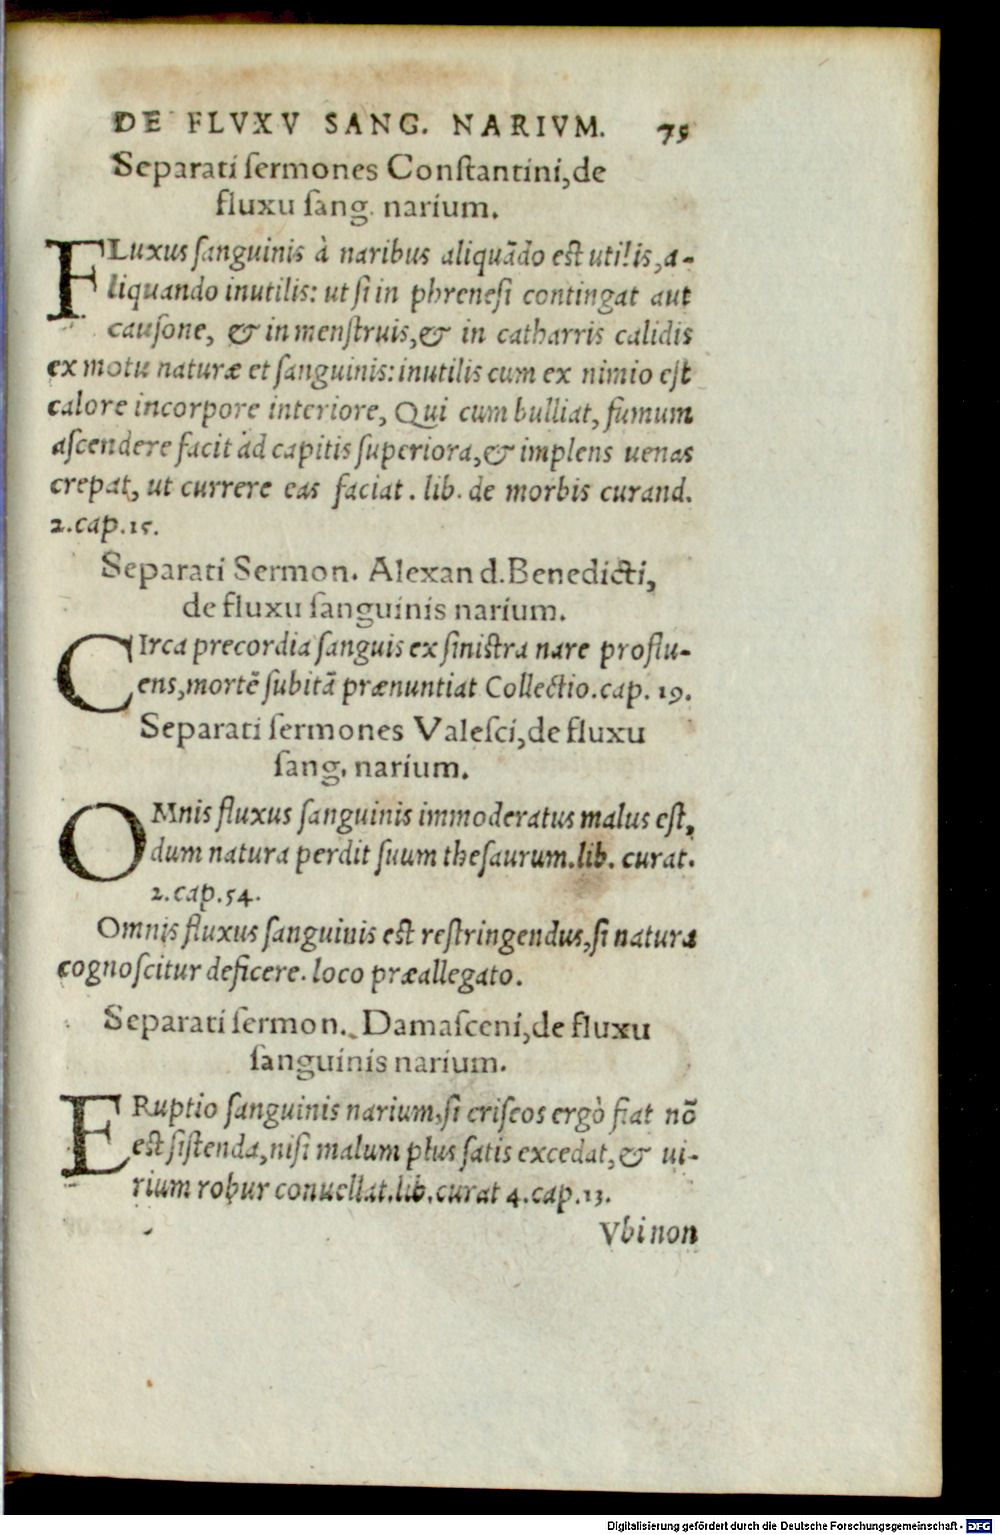 DE FLVXV SANG. NARIVM. 75
Separati sermones Constantini, de
fluxu sang. narium.
FLuxus sanguinis à naribus aliquãdo est utilis, a-
liquando inutilis: ut si in phrenesi contingat aut
causone, & in menstruis, & in catharris calidis
ex motu naturæ et sanguinis: inutilis cum ex nimio est
calore incorpore interiore, Qui cum bulliat, fumum
ascendere facit ad capitis superiora, & implens uenas
crepat, ut currere eas faciat. lib. de morbis curand.
2.cap.15.
Separati Sermon. Alexan d. Benedicti,
de fluxu sanguinis narium.
CIrca precordia sanguis ex sinistra nare proflu-
ens, mortẽ subitã prænuntiat Collectio. cap. 19.
Separati sermones Valesci, de fluxu
sang. narium.
OMnis fluxus sanguinis immoderatus malus est,
dum natura perdit suum thesaurum. lib. curat.
2.cap.54.
Omnis fluxus sanguinis est restringendus, si natura
cognoscitur deficere. loco præallegato.
Separati sermon. Damasceni, de fluxu
sanguinis narium.
ERuptio sanguinis narium, si criseos ergò fiat nõ
est sistenda, nisi malum plus satis excedat, & ui-
rium robur conuellat. lib. curat 4. cap. 13.
Vbi non
Digitalisierung gefördert durch die Deutsche Forschungsgemeinschaft - DFG